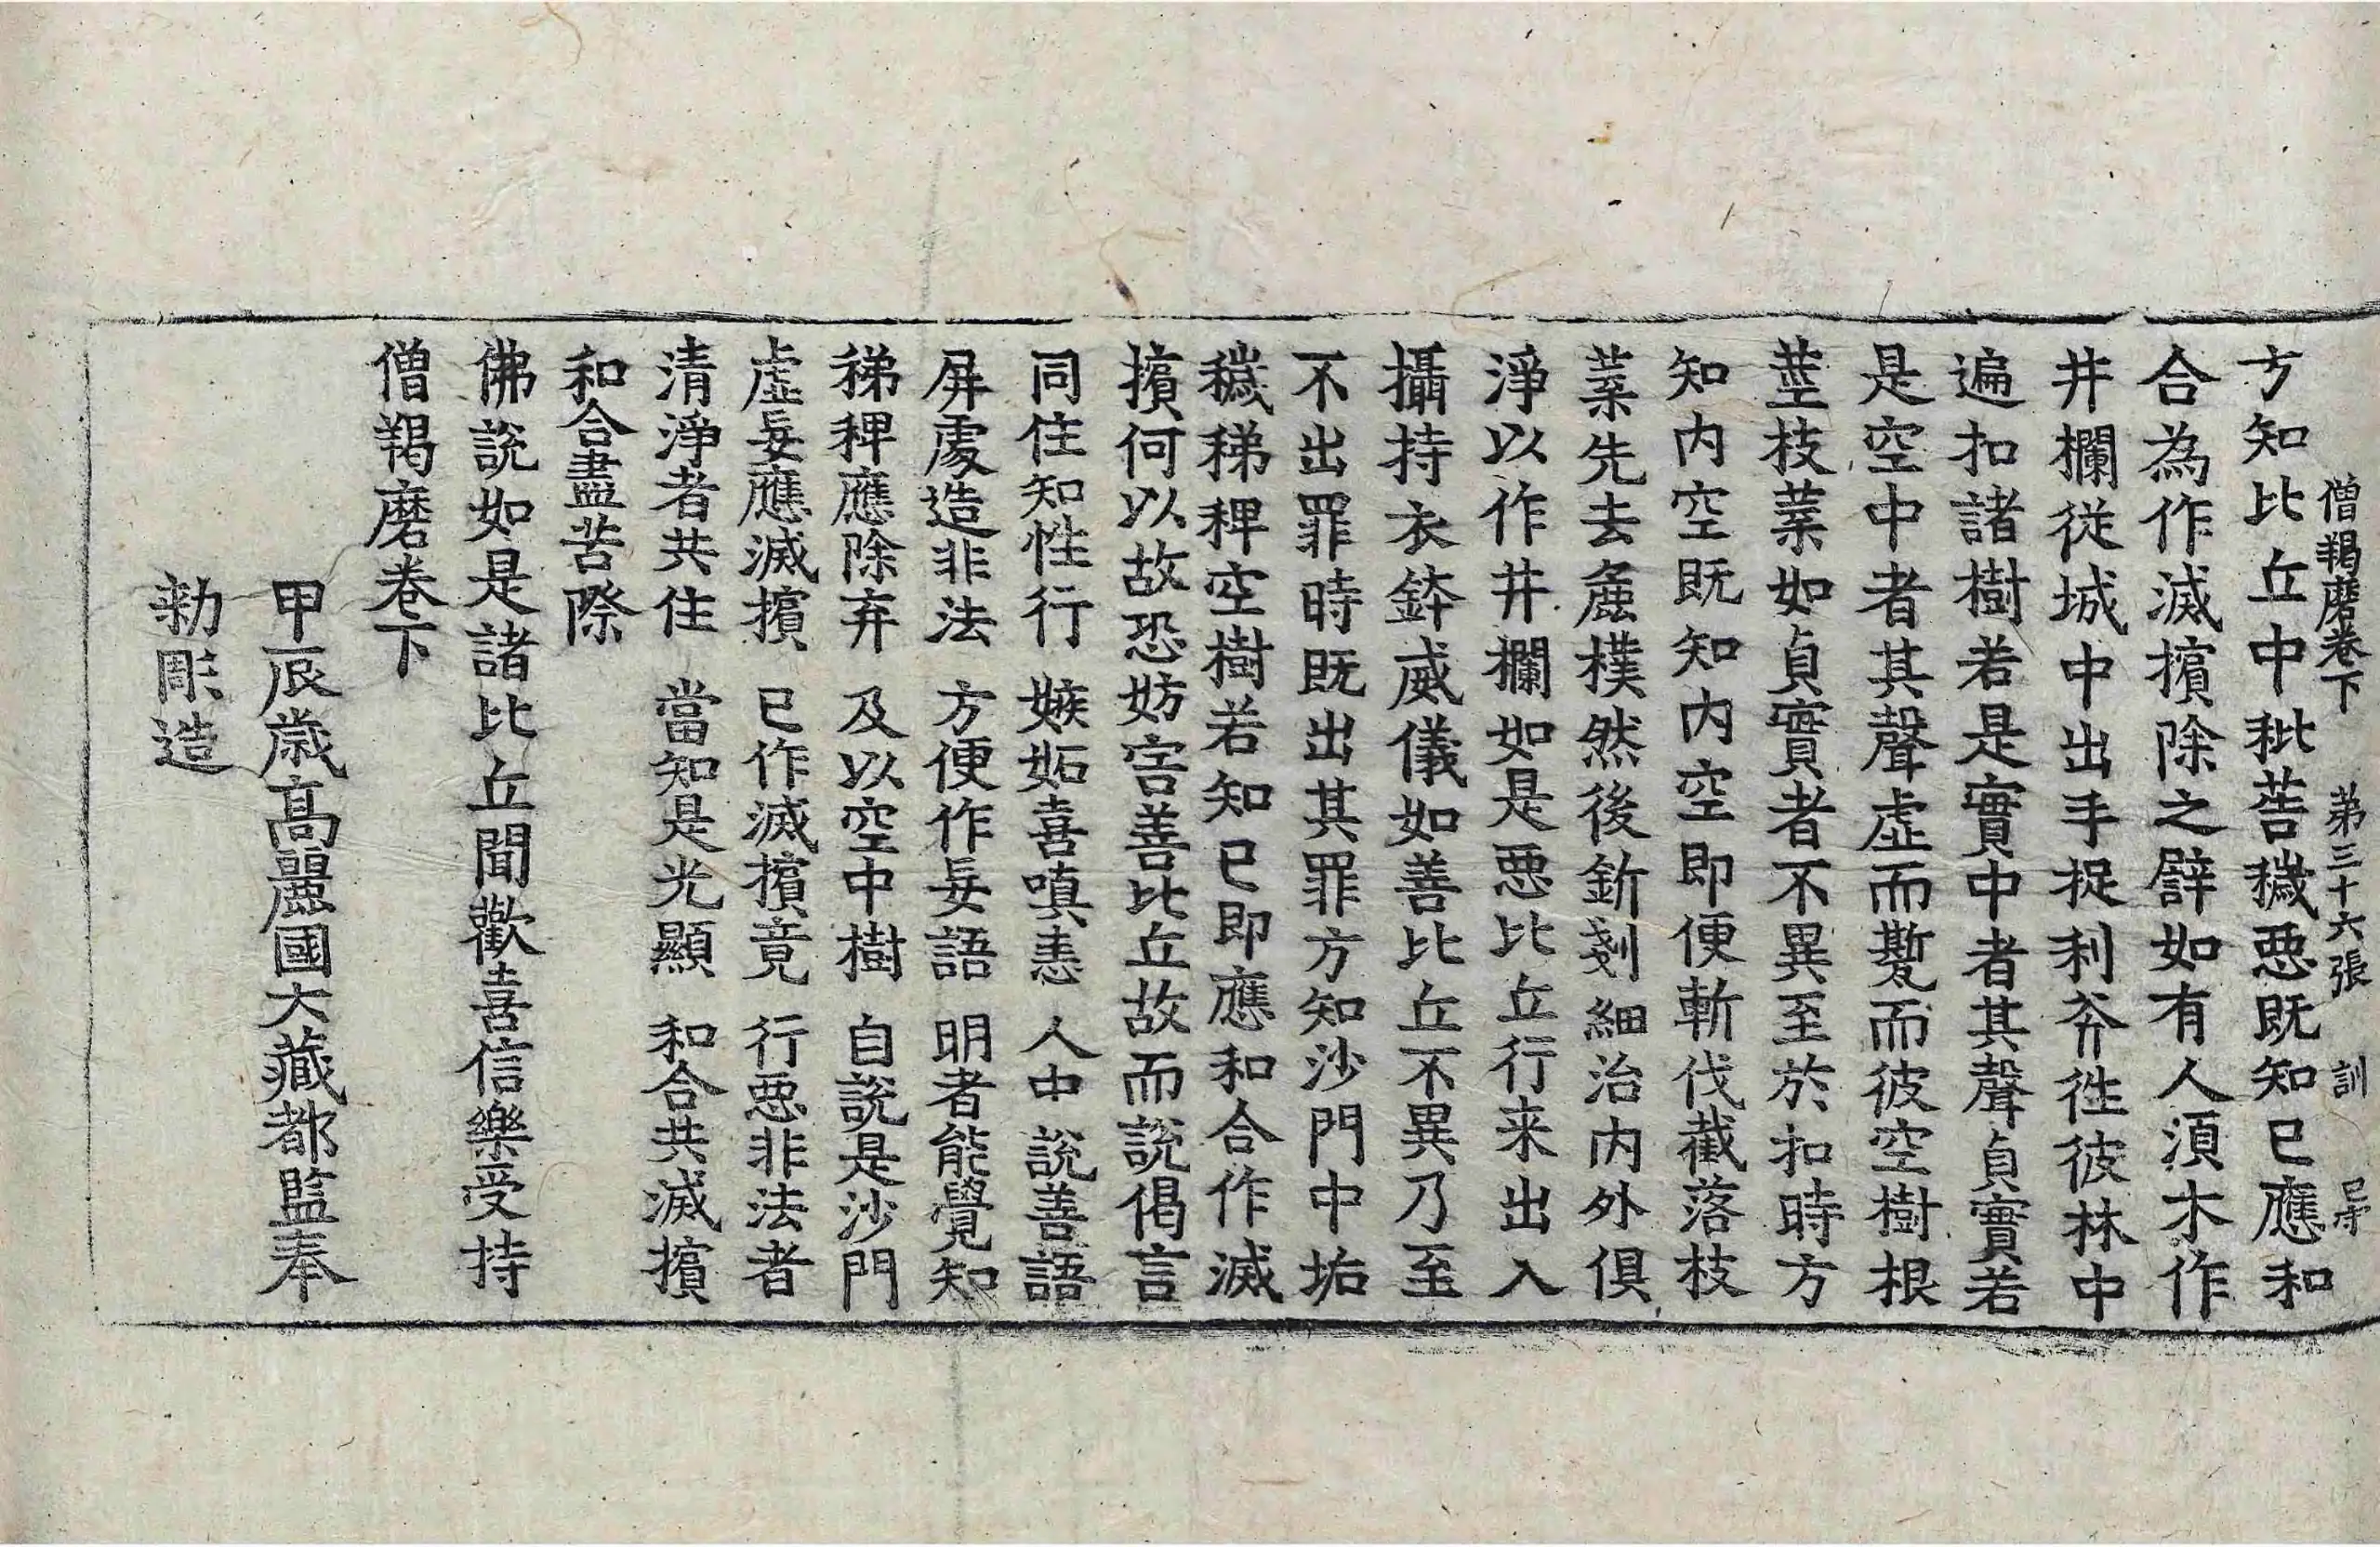 僧羯磨卷下 第三十六張 訓
方知比丘中秕莠穢惡既知已應和
合為作滅擯除之譬如有人須木作
井欄從城中出手捉利斧往彼林中
遍扣諸樹若是實中者其聲貞實若
是空中者其聲虛而𢕪而彼空樹根
莖枝葉如貞實者不異至於扣時方
知內空既知內空即便斬伐截落枝
葉先去麁樸然後釿剗細治內外俱
淨以作井欄如是惡比丘行来出入
攝持衣鉢威儀如善比丘不異乃至
不出罪時既出其罪方知沙門中垢
穢稊稗空樹若知已即應和合作滅
擯何以故恐妨害善比丘故而說偈言
同住知性行 嫉妬喜嗔恚 人中說善語
屏處造非法 方便作妄語 明者能覺知
稊稗應除弃 及以空中樹 自說是沙門
虛妄應滅擯 已作滅擯竟 行惡非法者
清淨者共住 當知是光顯 和合共滅擯
和合盡苦際
佛說如是諸比丘聞歡喜信樂受持
僧羯磨卷下
甲辰歲高麗國大藏都監奉
勅彫造